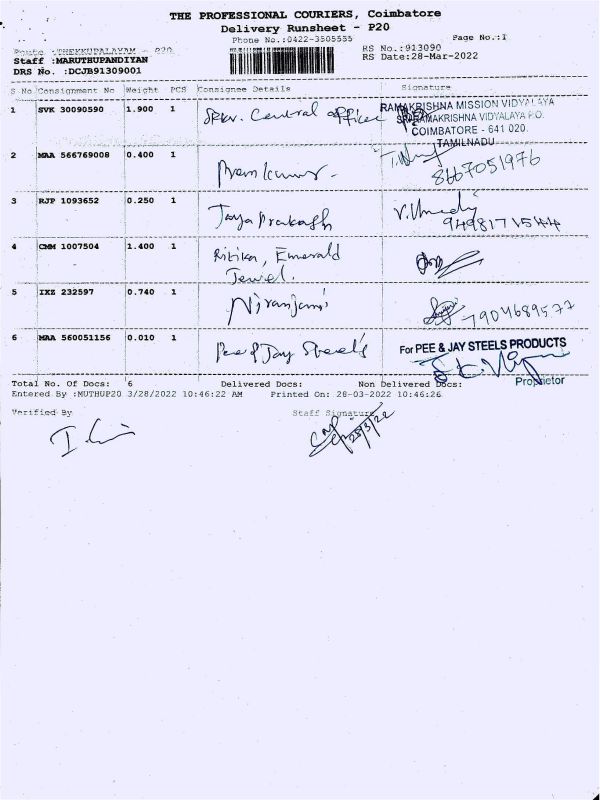 THE PROFESSIONAL COURIERS, Coimbatore
Delivery Runsheet - P20
Phone No.:0422-3505555
Page No.:1
Route :THEKKUPALAYAM - P20
RS No.:913090
Staff :MARUTHUPANDIYAN
RS Date:28-Mar-2022
DRS No. :DCJB91309001
S No Consignment No Weight PCS Consignee Details Signature
1 SVK 30090590 1.900 1 Central Office
RAMAKRISHNA MISSION VIDYALAYA
SRI RAMAKRISHNA VIDYALAYA P.O.
COIMBATORE - 641 020.
TAMILNADU
2 MAA 566769008 0.400 1 Premkumar
8667051976
3 RJP 1093652 0.250 1 Jaya Prakash
9498171544
4 CMM 1007504 1.400 1 Ritika, Emerald
Jewel.
5 IXZ 232597 0.740 1 Niranjani
7904689577
6 MAA 560051156 0.010 1 Pee & Jay Steel's
For PEE & JAY STEELS PRODUCTS
Proprietor
Total No. Of Docs: 6 Delivered Docs: Non Delivered Docs:
Entered By :MUTHUP20 3/28/2022 10:46:22 AM Printed On: 28-03-2022 10:46:26
Verified By Staff Signature
28/3/22